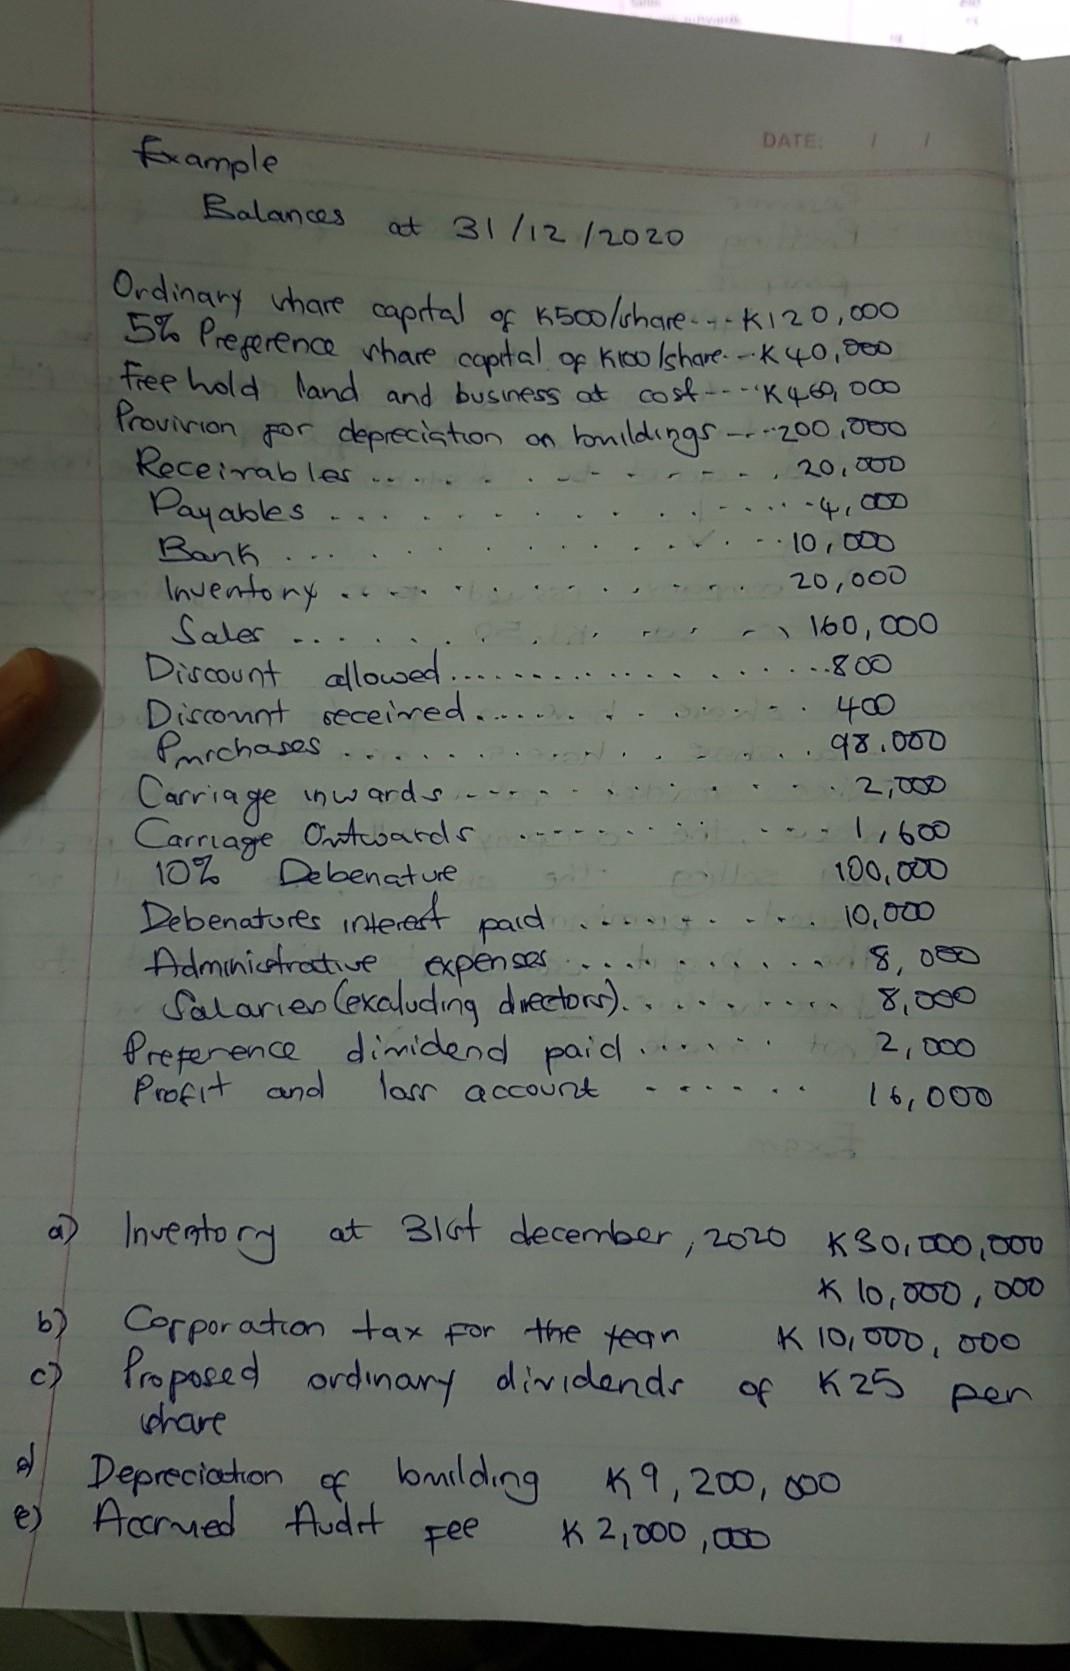 DATE: / /
Example
Balances at 31/12/2020
Ordinary share capital of K500/share... K120,000
5% Preference share capital of K100/share... K40,000
Free hold land and business at cost.... K460,000
Provision for depreciation on buildings.... 200,000
Receivables ... 20,000
Payables ... 4,000
Bank ... 10,000
Inventory ... 20,000
Sales ... 160,000
Discount allowed ... 800
Discount received ... 400
Purchases ... 98.000
Carriage inwards ... 2,000
Carriage Outwards ... 1,600
10% Debenature 100,000
Debenatures interest paid ... 10,000
Administrative expenses ... 8,000
Salaries (excluding directors) ... 8,000
Preference dividend paid ... 2,000
Profit and loss account ... 16,000
a) Inventory at 31st december, 2020 K30,000,000
K 10,000,000
b) Corporation tax for the year K 10,000,000
c) Proposed ordinary dividends of K25 per
share
d) Depreciation of building K9,200,000
e) Accrued Audit Fee K 2,000,000